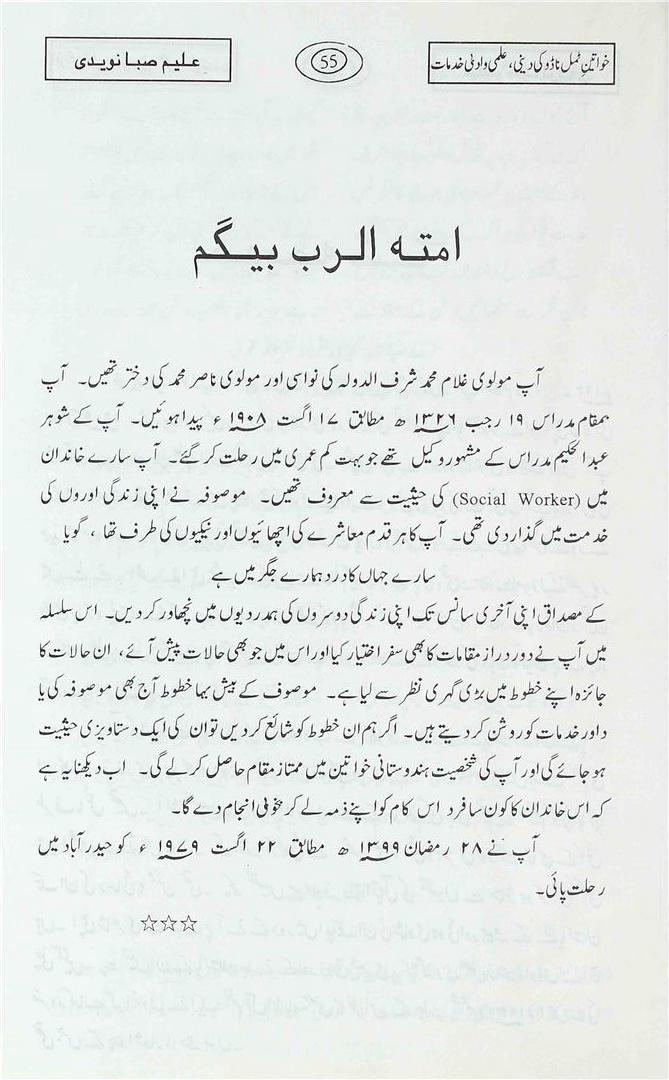 خواتینِ ٹمل ناڈو کی دینی، علمی و ادبی خدمات
55
علیم صبا نویدی
امتہ الرب بیگم
آپ مولوی غلام محمد شرف الدولہ کی نواسی اور مولوی ناصر محمد کی دختر تھیں۔ آپ
بمقام مدراس ۱۹ رجب ۱۳۲۶ ھ مطابق ۱۷ اگست ۱۹۰۸ ء پیدا ہوئیں۔ آپ کے شوہر
عبدالحکیم مدراس کے مشہور وکیل تھے جو بہت کم عمری میں رحلت کر گئے۔ آپ سارے خاندان
میں (Social Worker) کی حیثیت سے معروف تھیں۔ موصوفہ نے اپنی زندگی اوروں کی
خدمت میں گذار دی تھی۔ آپ کا ہر قدم معاشرے کی اچھائیوں اور نیکیوں کی طرف تھا ، گویا
سارے جہاں کا درد ہمارے جگر میں ہے
کے مصداق اپنی آخری سانس تک اپنی زندگی دوسروں کی ہمدردیوں میں نچھاور کر دیں۔ اس سلسلہ
میں آپ نے دور دراز مقامات کا بھی سفر اختیار کیا اور اس میں جو بھی حالات پیش آئے، ان حالات کا
جائزہ اپنے خطوط میں بڑی گہری نظر سے لیا ہے۔ موصوف کے بیش بہا خطوط آج بھی موصوفہ کی یا
د اور خدمات کو روشن کر دیتے ہیں۔ اگر ہم ان خطوط کو شائع کر دیں تو ان کی ایک دستاویزی حیثیت
ہو جائے گی اور آپ کی شخصیت ہندوستانی خواتین میں ممتاز مقام حاصل کر لے گی۔ اب دیکھنا یہ ہے
کہ اس خاندان کا کون سا فرد اس کام کو اپنے ذمہ لے کر بخوبی انجام دے گا۔
آپ نے ۲۸ رمضان ۱۳۹۹ ھ مطابق ۲۲ اگست ۱۹۷۹ ء کو حیدرآباد میں
رحلت پائی۔
☆☆☆